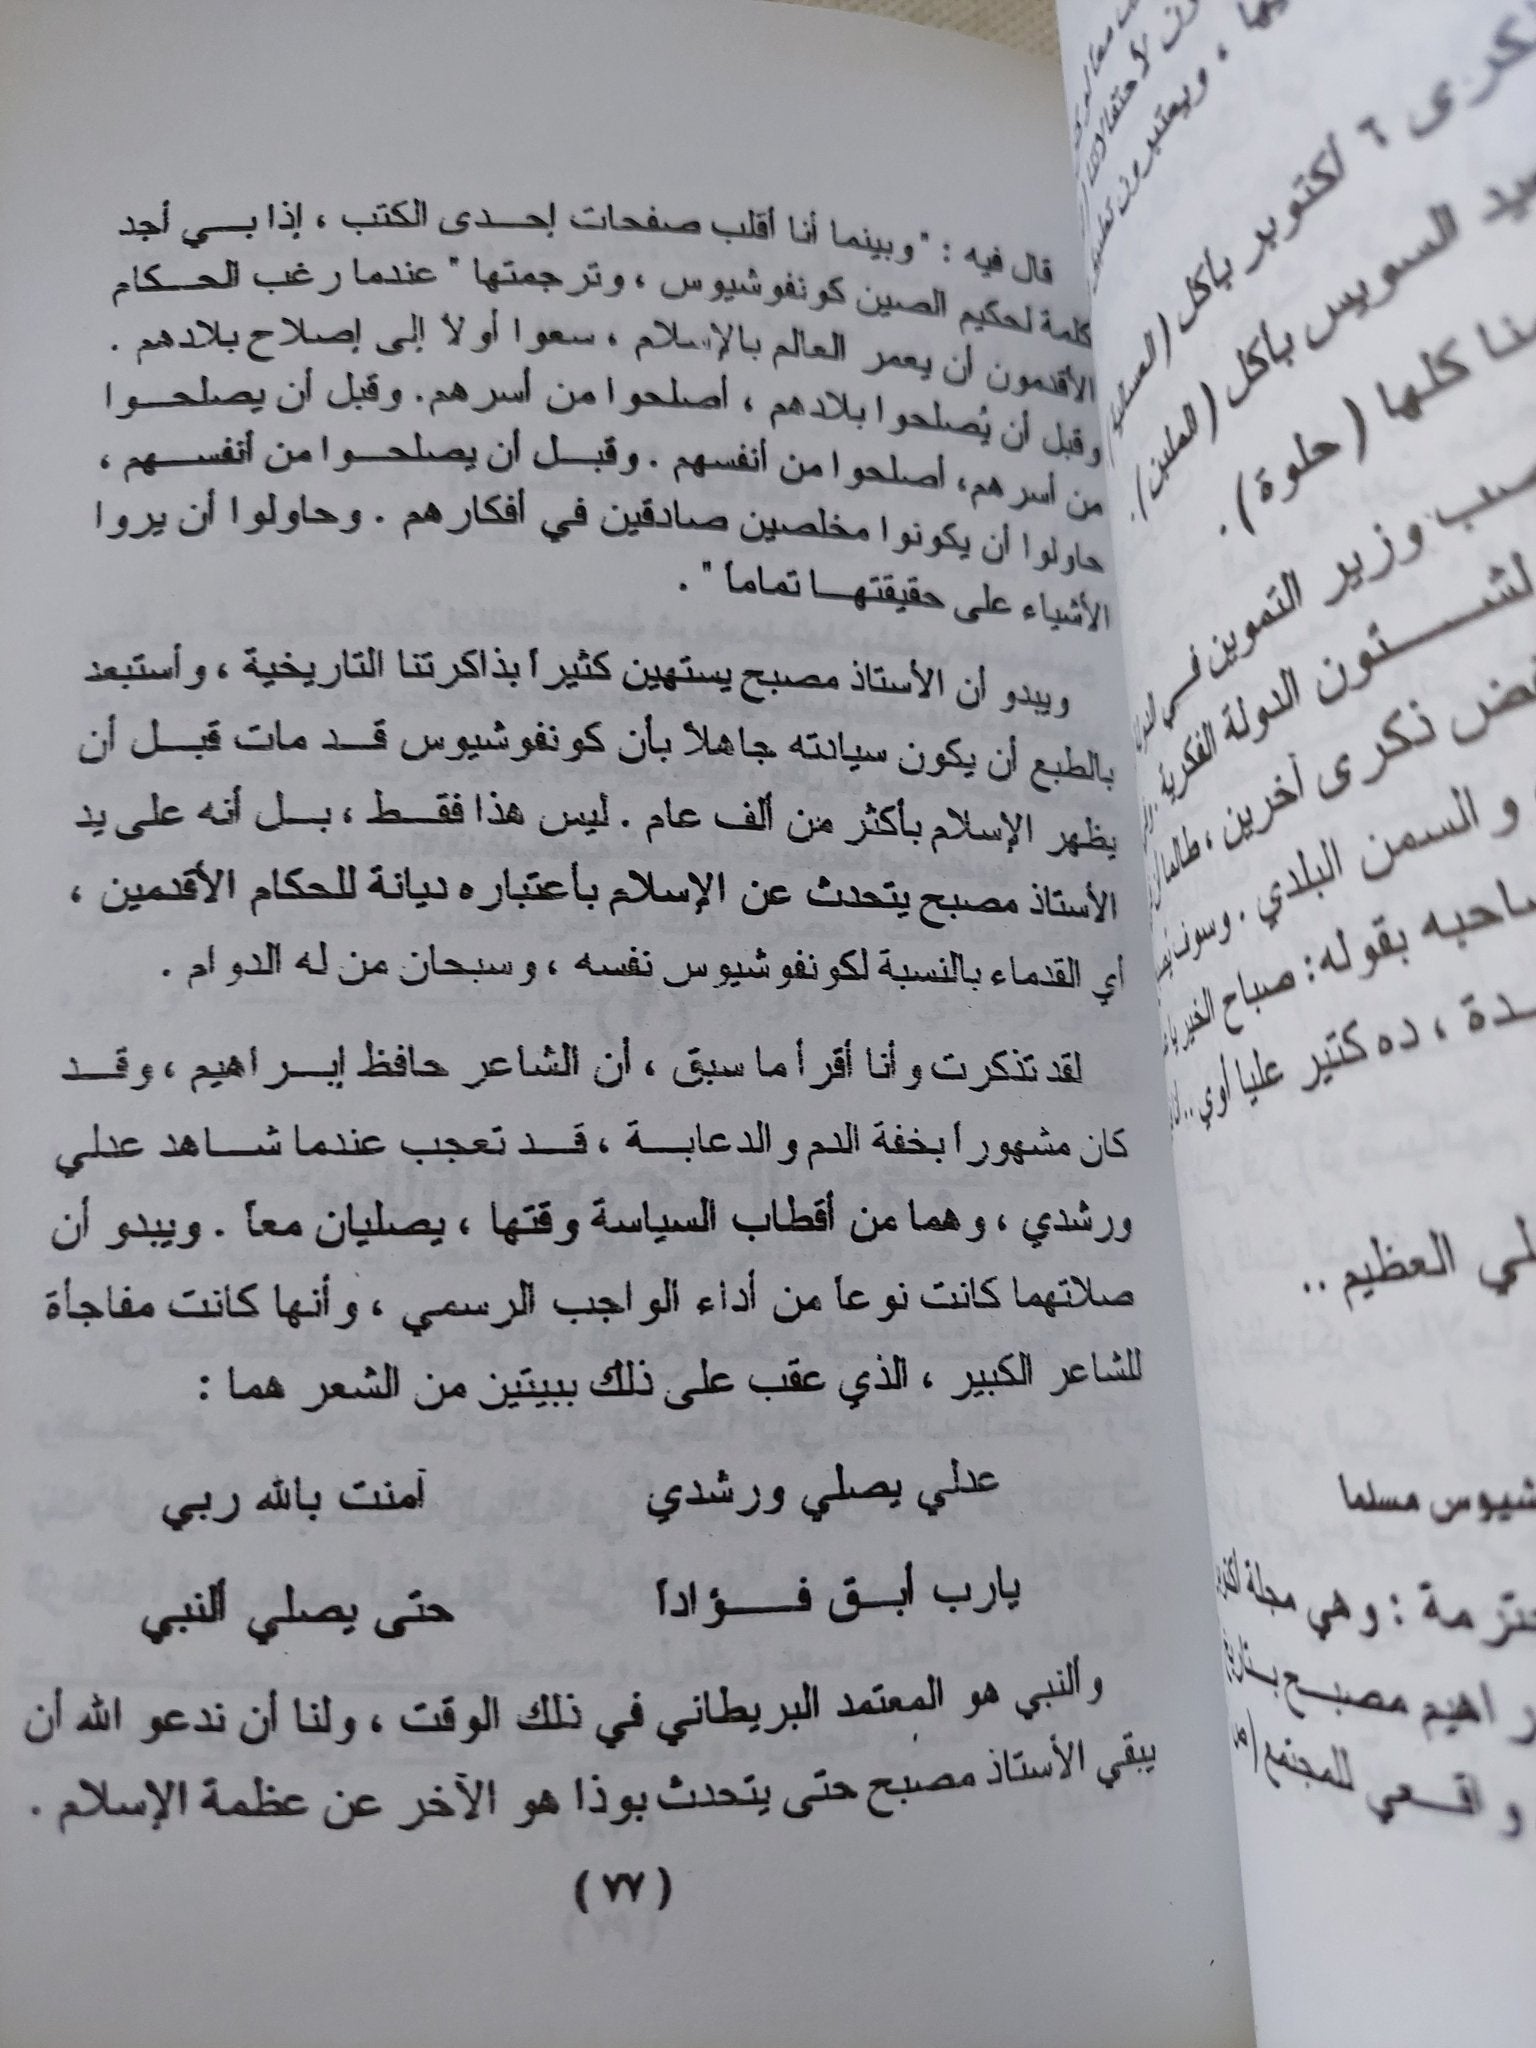 قال فيه : " وبينما أنا أقلب صفحات إحدى الكتب ، إذا بي أجد
كلمة لحكيم الصين كونفوشيوس ، وترجمتها " عندما رغب الحكام
الأقدمون أن يعمر العالم بالإسلام ، سعوا أولاً إلى إصلاح بلادهم .
وقبل أن يُصلحوا بلادهم ، أصلحوا من أسرهم. وقبل أن يصلحوا
من أسرهم، أصلحوا من أنفسهم . وقبل أن يصلحوا من أنفسهم ،
حاولوا أن يكونوا مخلصين صادقين في أفكارهم . وحاولوا أن يروا
الأشياء على حقيقتها تماماً " .
ويبدو أن الأستاذ مصبح يستهين كثيراً بذاكرتنا التاريخية ، وأستبعد
بالطبع أن يكون سيادته جاهلاً بأن كونفوشيوس قد مات قبل أن
يظهر الإسلام بأكثر من ألف عام . ليس هذا فقط ، بل أنه على يد
الأستاذ مصبح يتحدث عن الإسلام بأعتباره ديانة للحكام الأقدمين ،
أي القدماء بالنسبة لكونفوشيوس نفسه ، وسبحان من له الدوام .
لقد تذكرت وأنا أقرأ ما سبق ، أن الشاعر حافظ إبراهيم ، وقد
كان مشهوراً بخفة الدم والدعابة ، قد تعجب عندما شاهد عدلي
ورشدي ، وهما من أقطاب السياسة وقتها ، يصليان معاً . ويبدو أن
صلاتهما كانت نوعاً من أداء الواجب الرسمي ، وأنها كانت مفاجأة
للشاعر الكبير ، الذي عقب على ذلك ببيتين من الشعر هما :
عدلي يصلي ورشدي آمنت بالله ربي
يارب أبق فؤاداً حتى يصلي ألنبي
وألنبي هو المعتمد البريطاني في ذلك الوقت ، ولنا أن ندعو الله أن
يبقي الأستاذ مصبح حتى يتحدث بوذا هو الآخر عن عظمة الإسلام .
(٧٧)
كرى ٦ أكتوبر يأكل
يد السويس يأكل (الملبن).
نا كلها (حلوة).
وزير التموين في
الدولة الفكرية
ذكرى آخرين ، طالما
و السمن البلدي . وسوف
صاحبه بقوله: صباح الخير يا
دة ، ده كتير عليا أوي ..
العظيم ..
شيوس مسلما
: وهي مجلة
اهيم مصبح
واقعي للمجتمع